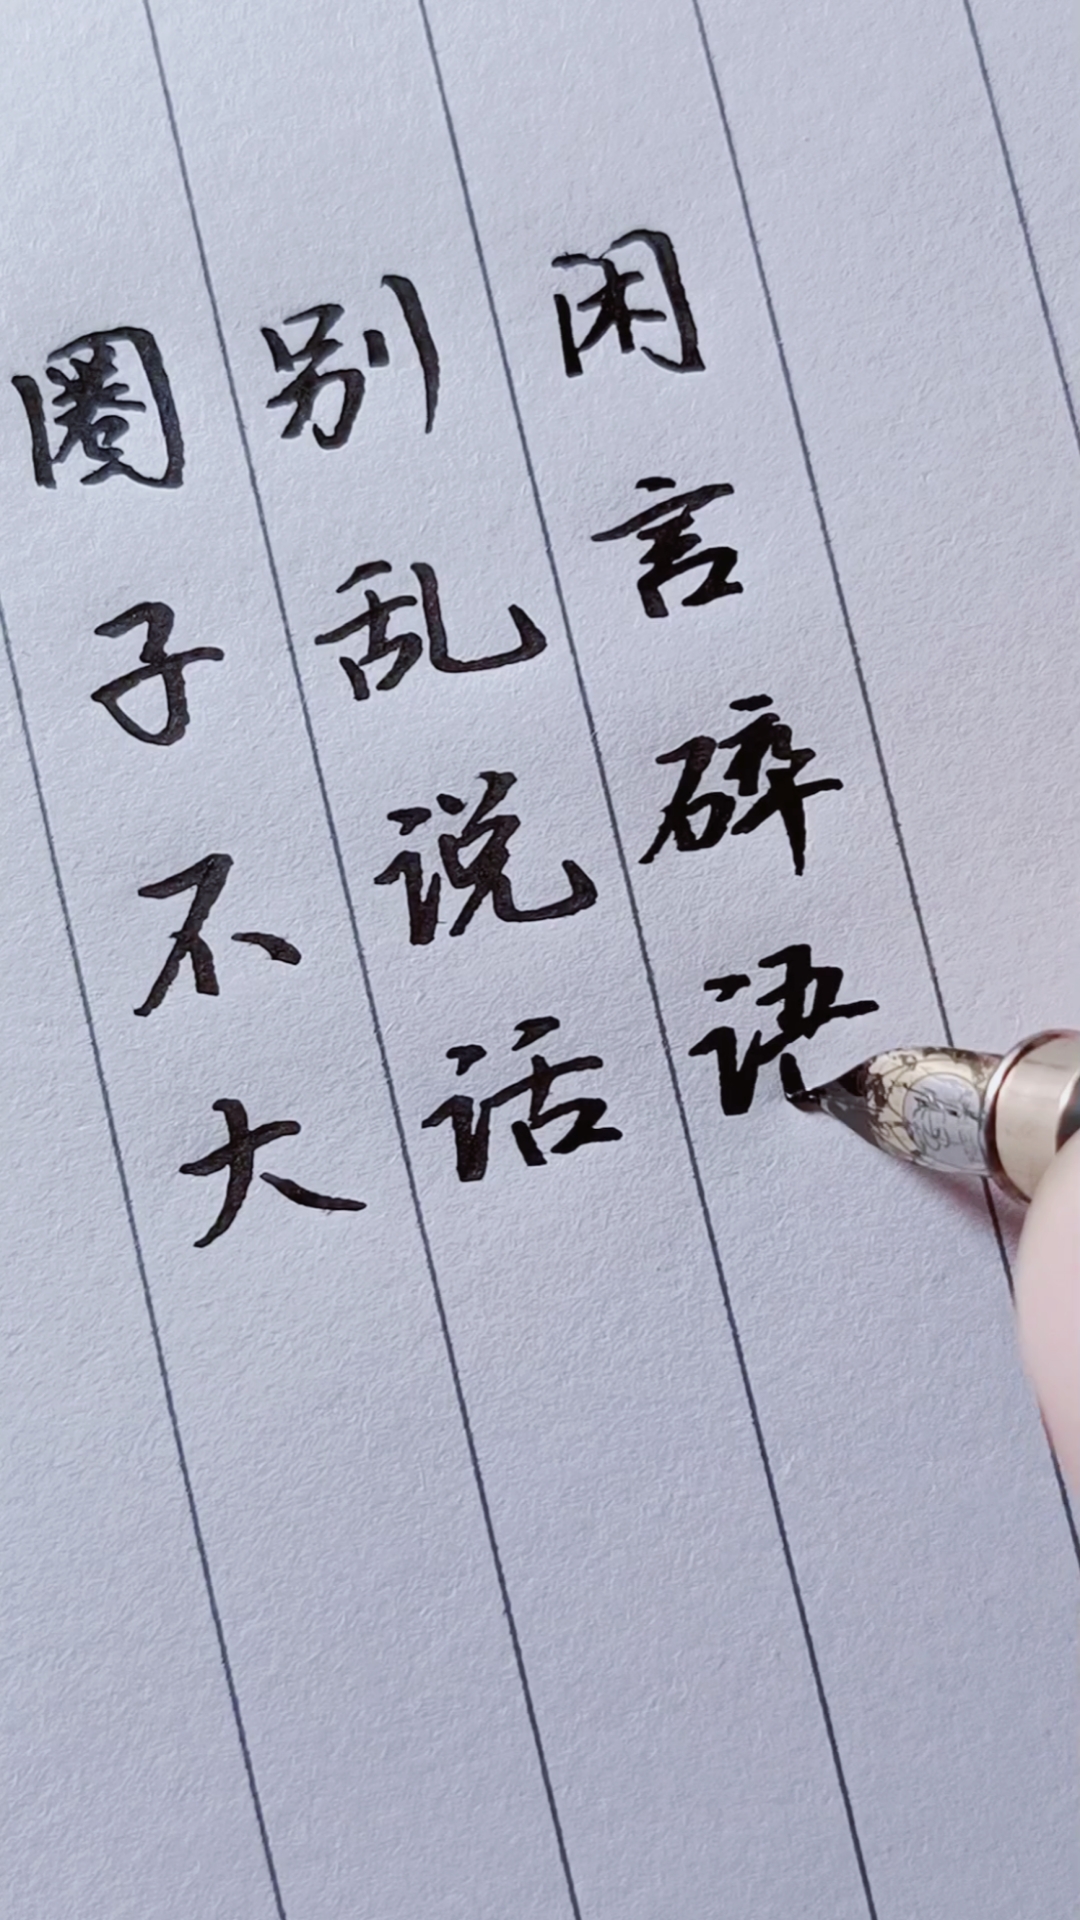 圈子不大
别乱说话
闲言碎语